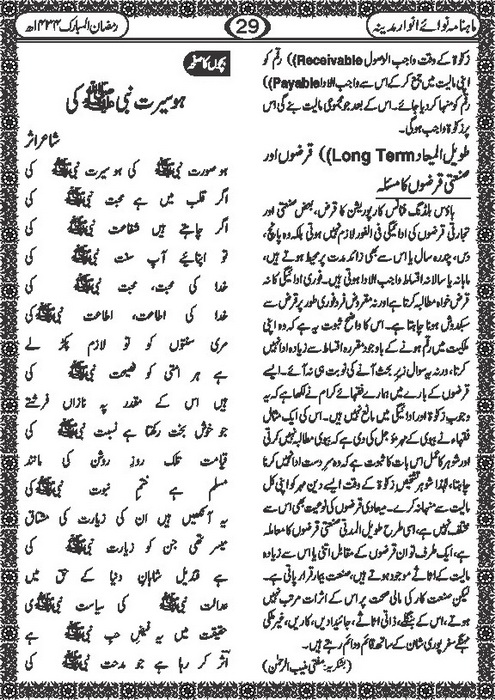 ماہنامہ نوائے انوار مدینہ
29
رمضان المبارک ۱۴۳۴ھ
زکوٰۃ کے وقت واجب الوصول Receivable)) رقم کو
اپنی مالیت میں جمع کر کے اس سے واجب الادا Payable))
رقم کو منہا کر دیا جائے۔ اس کے بعد جو مجموعی مالیت بنے گی اس
پر زکوٰۃ واجب ہوگی۔
طویل المیعاد Long Term)) قرضوں اور
صنعتی قرضوں کا مسئلہ
ہاؤس بلڈنگ فنانس کارپوریشن کا قرض، بعض صنعتی اور
تجارتی قرضوں کی ادائیگی فی الفور لازم نہیں ہوتی بلکہ وہ پانچ،
دس، پندرہ سال یا اس سے بھی زائد مدت پر محیط ہوتے ہیں،
ماہانہ یا سالانہ اقساط واجب الادا ہوتی ہیں۔ فوری ادائیگی کا نہ
قرض خواہ مطالبہ کرتا ہے اور نہ مقروض فرد فوری طور پر قرض سے
سبکدوش ہونا چاہتا ہے۔ اس کا واضح ثبوت یہ ہے کہ وہ اپنی
ملکیت میں رقم ہونے کے باوجود مقررہ اقساط سے زیادہ ادا نہیں
کرتا، ورنہ یہ سوال زیر بحث آنے کی نوبت ہی نہ آئے۔ ایسے
قرضوں کے بارے میں ہمارے فقہائے کرام نے لکھا ہے کہ یہ
وجوب زکوٰۃ اور ادائیگی میں مانع نہیں ہیں۔ اس کی ایک مثال
فقہاء نے بیوی کے مہر مؤجل کی دی ہے کہ بیوی مطالبہ نہیں کرتی
اور شوہر کا عمل اس بات کا ثبوت ہے کہ وہ سر دست ادا نہیں کرنا
چاہتا، لہٰذا شوہر تشخیص زکوٰۃ کے وقت ایسے دین مہر کو اپنی کل
مالیت سے منہا نہ کرے۔ میعادی قرضوں کی نوعیت بھی اس سے
مختلف نہیں ہے، اسی طرح طویل المدتی صنعتی قرضوں کا معاملہ
ہے، ایک طرف تو ان قرضوں کے مقابل اتنی یا اس سے زیادہ
مالیت کے اثاثے موجود ہوتے ہیں، صنعت بیمار قرار پاتی ہے۔
لیکن صنعت کار کی مالی صحت پر اس کے اثرات مرتب نہیں
ہوتے، اس کے بنگلے، ذاتی اثاثے، جائیدادیں، کاریں، غیر ملکی
مہنگے سفر پوری شان کے ساتھ قائم و دائم رہتے ہیں۔
(بشکریہ: مفتی منیب الرحمٰن)
بچوں کا صفحہ
ہو سیرت نبی ﷺ کی
شاعر اثر
ہو صورت نبی ﷺ کی ہو سیرت نبی ﷺ کی
اگر قلب میں ہے محبت نبی ﷺ کی
اگر چاہتے ہیں شفاعت نبی ﷺ کی
تو اپنائیے آپ سنت نبی ﷺ کی
خدا کی محبت، محبت نبی ﷺ کی
خدا کی اطاعت، اطاعت نبی ﷺ کی
مری سنتوں کو تو لازم پکڑ لے
ہے ہر امتی کو نصیحت نبی ﷺ کی
ہیں اس کے مقدر پہ نازاں فرشتے
جو خوش بخت رکھتا ہے نسبت نبی ﷺ کی
قیامت تلک روز روشن کی مانند
مسلم ہے ختم نبوت نبی ﷺ کی
یہ آنکھیں ہیں ان کی زیارت کی مشتاق
میسر تھی جن کو زیارت نبی ﷺ کی
ہے قندیل شاہان دنیا کے حق میں
عدالت نبی ﷺ کی سیاست نبی ﷺ کی
حقیقت میں یہ فیض حب نبی ﷺ ہے
اثر کر رہا ہے جو مدحت نبی ﷺ کی